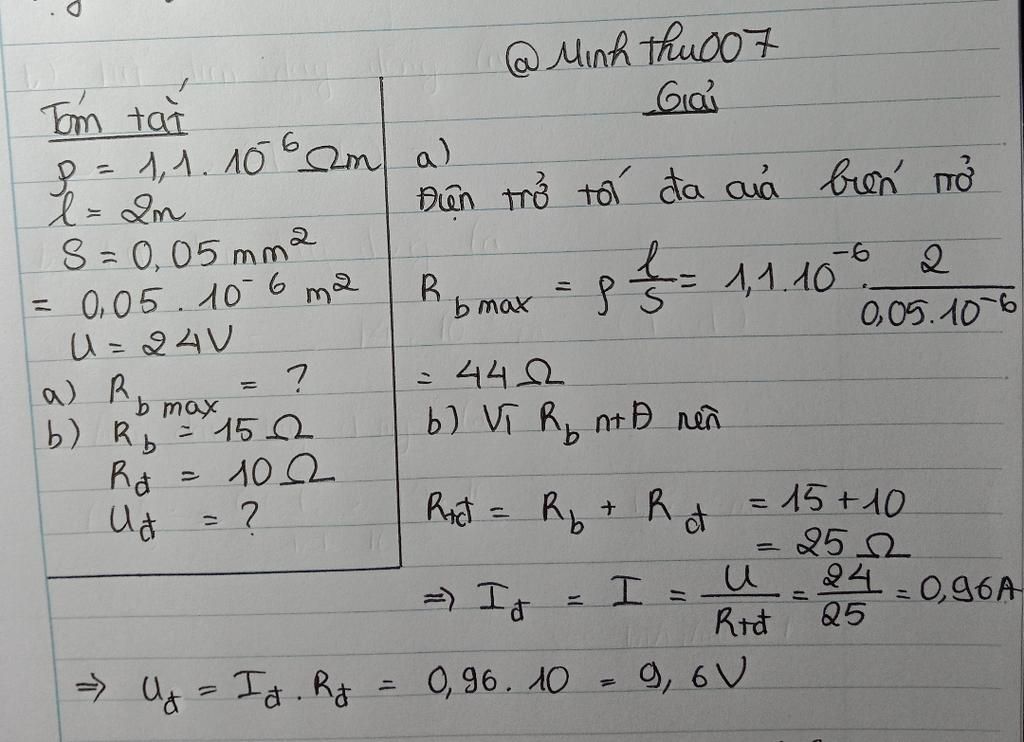 @Minhthu007
Tóm tắt
ρ = 1,1.10⁻⁶ Ωm
l = 2m
S = 0,05 mm²
= 0,05.10⁻⁶ m²
U = 24V
a) R_b max = ?
b) R_b = 15 Ω
R_đ = 10 Ω
U_đ = ?
Giải
a)
Điện trở tối đa của biến trở
R_b max = ρ l/S = 1,1.10⁻⁶ . 2/0,05.10⁻⁶
= 44 Ω
b) Vì R_b nt Đ nên
R_tđ = R_b + R_đ = 15 + 10
= 25 Ω
=> I_đ = I = U/R_tđ = 24/25 = 0,96A
=> U_đ = I_đ . R_đ = 0,96 . 10 = 9,6V